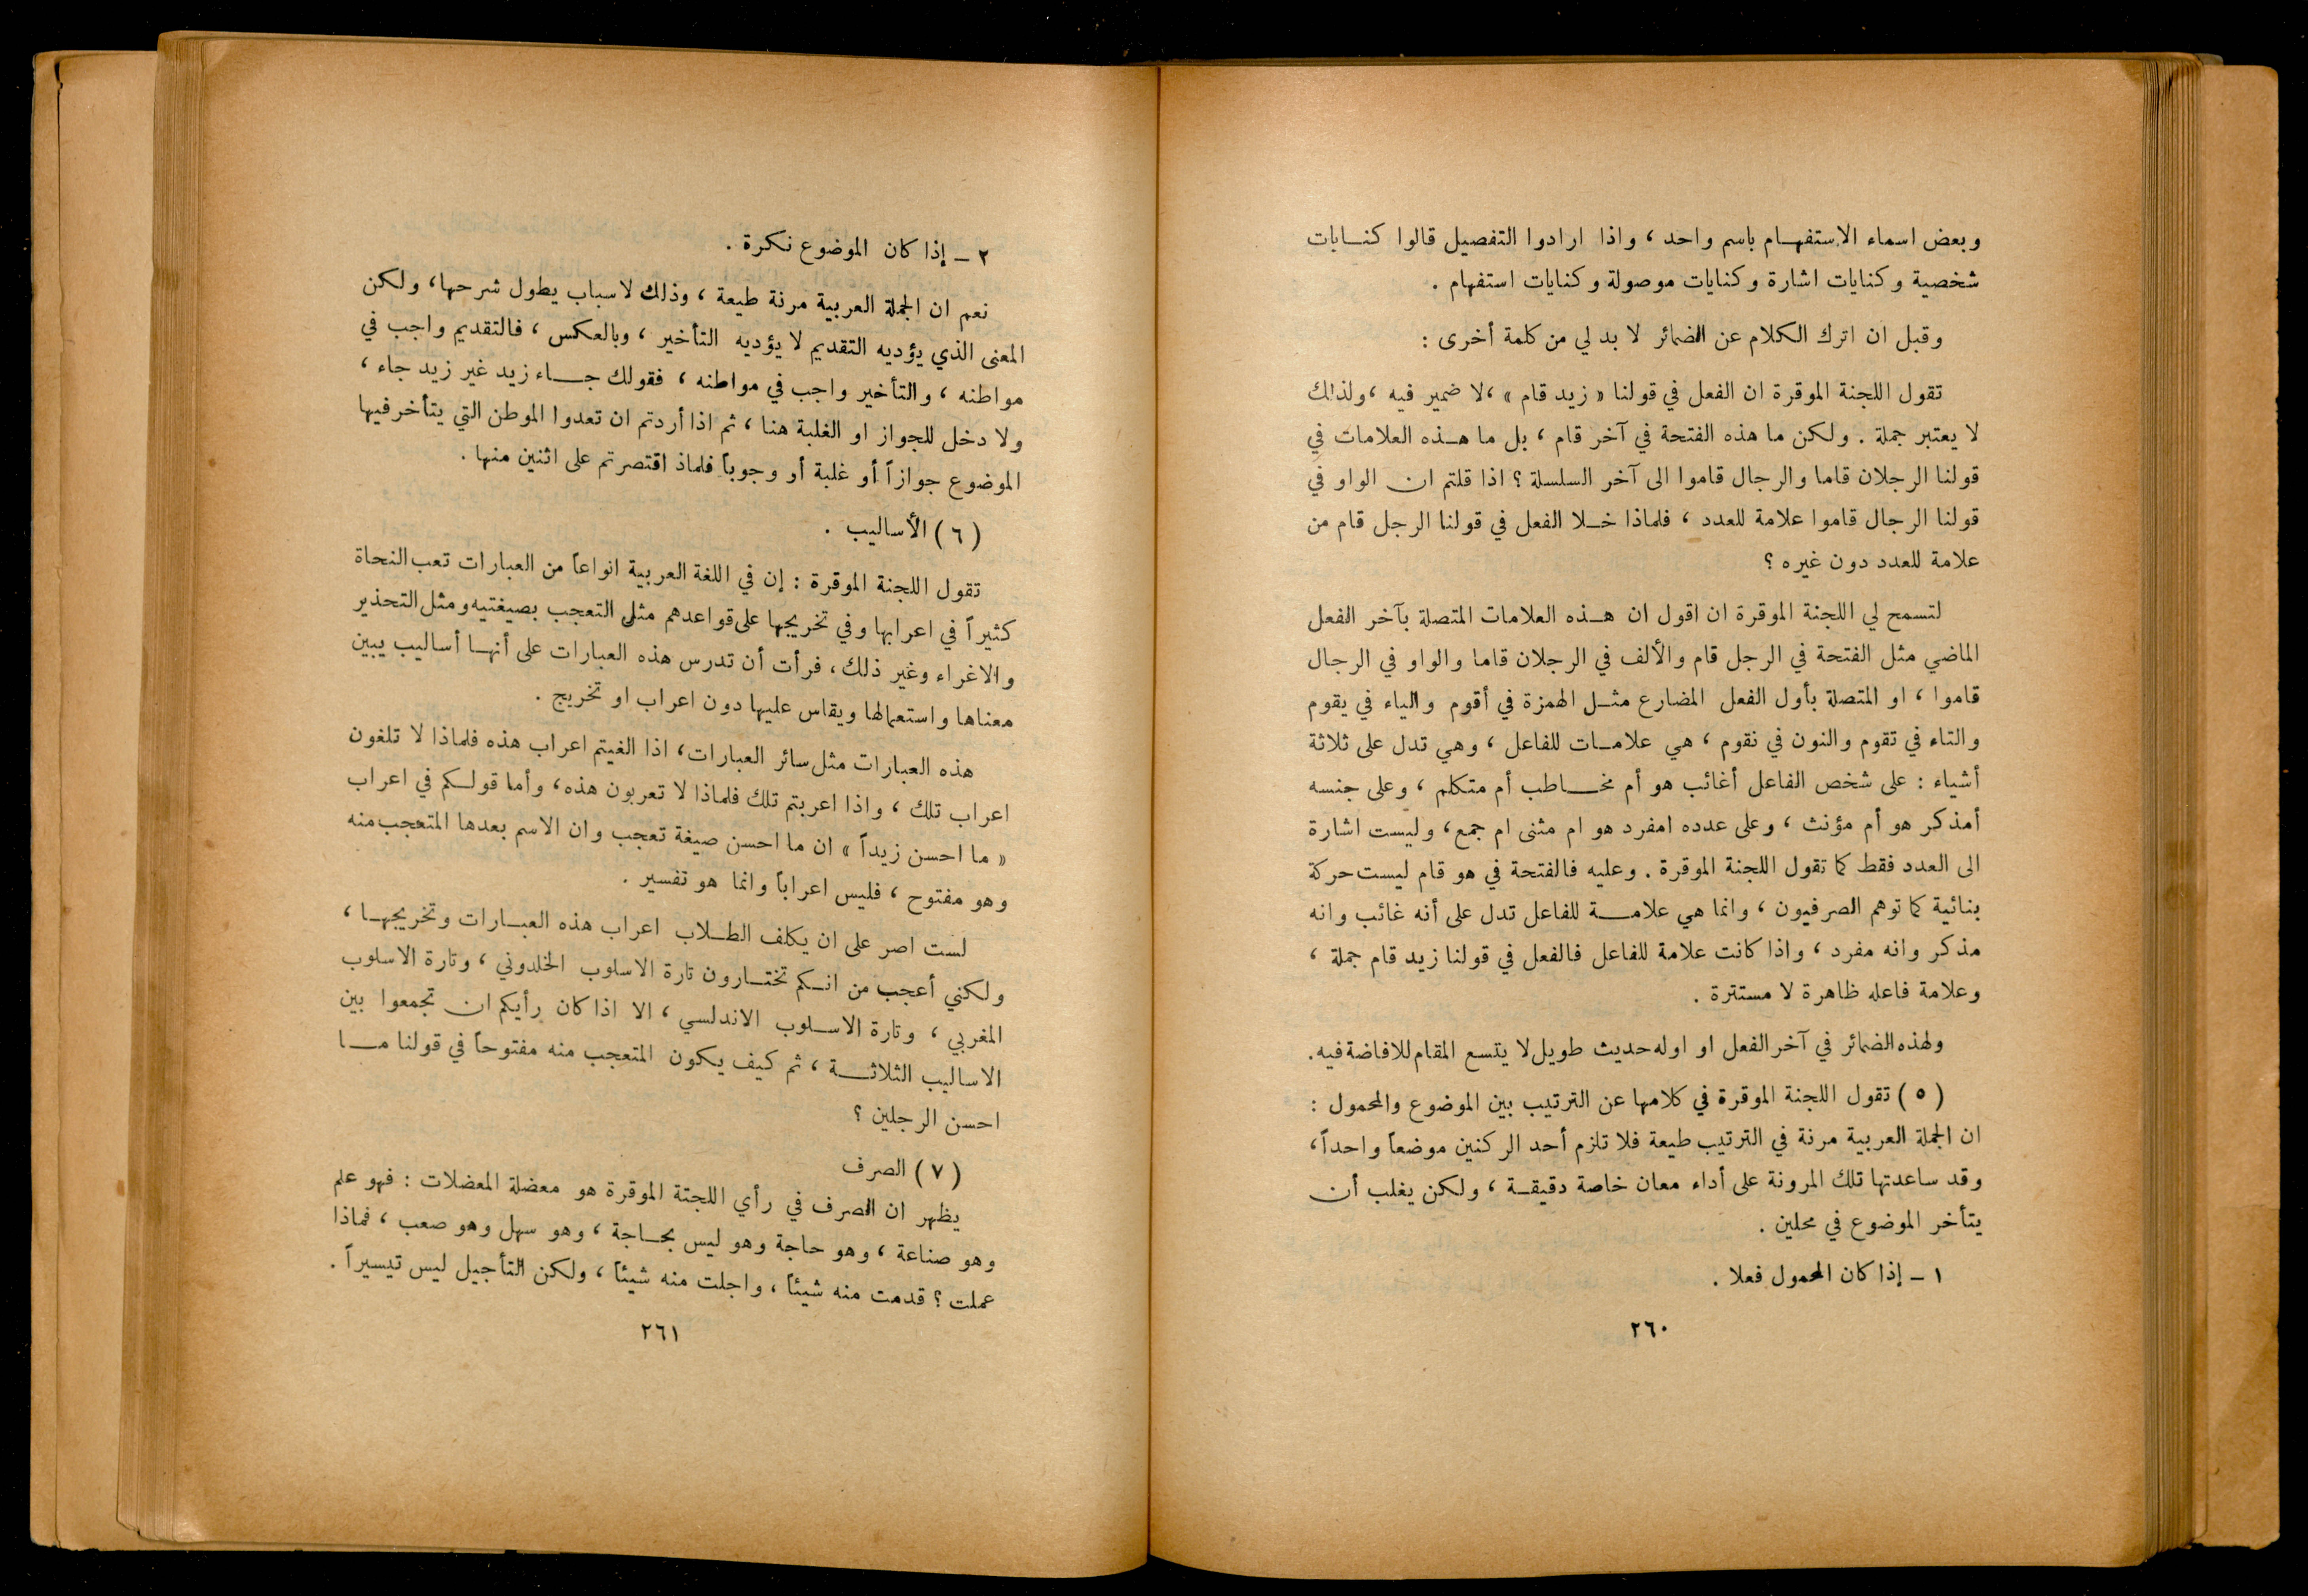 وبعض اسماء الاستفهام باسم واحد ، واذا ارادوا التفصيل قالوا كنايات
شخصية وكنايات اشارة وكنايات موصولة وكنايات استفهام .
وقبل ان اترك الكلام عن الضمائر لا بد لي من كلمة أخرى :
تقول اللجنة الموقرة ان الفعل في قولنا « زيد قام » ، لا ضمير فيه ، ولذلك
لا يعتبر جملة . ولكن ما هذه الفتحة في آخر قام ، بل ما هذه العلامات في
قولنا الرجلان قاما والرجال قاموا الى آخر السلسلة ؟ اذا قلتم ان الواو في
قولنا الرجال قاموا علامة للعدد ، فلماذا خلا الفعل في قولنا الرجل قام من
علامة للعدد دون غيره ؟
لتسمح لي اللجنة الموقرة ان اقول ان هذه العلامات المتصلة بآخر الفعل
الماضي مثل الفتحة في الرجل قام والألف في الرجلان قاما والواو في الرجال
قاموا ، او المتصلة بأول الفعل المضارع مثل الهمزة في أقوم والياء في يقوم
والتاء في تقوم والنون في نقوم ، هي علامات للفاعل ، وهي تدل على ثلاثة
أشياء : على شخص الفاعل أغائب هو أم مخاطب أم متكلم ، وعلى جنسه
أمذكر هو أم مؤنث ، وعلى عدده امفرد هو ام مثنى ام جمع ، وليست اشارة
الى العدد فقط كما تقول اللجنة الموقرة . وعليه فالفتحة في هو قام ليست حركة
بنائية كما توهم الصرفيون ، وانما هي علامة للفاعل تدل على أنه غائب وانه
مذكر وانه مفرد ، واذا كانت علامة للفاعل فالفعل في قولنا زيد قام جملة ،
وعلامة فاعله ظاهرة لا مستترة .
ولهذه الضمائر في آخر الفعل او اوله حديث طويل لا يتسع المقام للافاضة فيه .
( ٥ ) تقول اللجنة الموقرة في كلامها عن الترتيب بين الموضوع والمحمول :
ان الجملة العربية مرنة في الترتيب طيعة فلا تلزم أحد الركنين موضعاً واحداً ،
وقد ساعدتها تلك المرونة على أداء معان خاصة دقيقة ، ولكن يغلب أن
يتأخر الموضوع في محلين .
١ - إذا كان المحمول فعلا .
٢٦٠
٢ - إذا كان الموضوع نكرة .
نعم ان الجملة العربية مرنة طيعة ، وذلك لاسباب يطول شرحها ، ولكن
المعنى الذي يؤديه التقديم لا يؤديه التأخير ، وبالعكس ، فالتقديم واجب في
مواطنه ، والتأخير واجب في مواطنه ، فقولك جاء زيد غير زيد جاء ،
ولا دخل للجواز او الغلبة هنا ، ثم اذا أردتم ان تعدوا الموطن التي يتأخر فيها
الموضوع جوازاً أو غلبة أو وجوباً فلماذ اقتصرتم على اثنين منها .
( ٦ ) الأساليب .
تقول اللجنة الموقرة : إن في اللغة العربية انواعاً من العبارات تعب النحاة
كثيراً في اعرابها وفي تخريجها على قواعدهم مثل التعجب بصيغتيه ومثل التحذير
والاغراء وغير ذلك ، فرأت أن تدرس هذه العبارات على أنها أساليب يبين
معناها واستعمالها ويقاس عليها دون اعراب او تخريج .
هذه العبارات مثل سائر العبارات ، اذا الغيتم اعراب هذه فلماذا لا تلغون
اعراب تلك ، واذا اعربتم تلك فلماذا لا تعربون هذه ، وأما قولكم في اعراب
« ما احسن زيداً » ان ما احسن صيغة تعجب وان الاسم بعدها المتعجب منه
وهو مفتوح ، فليس اعراباً وانما هو تفسير .
لست اصر على ان يكلف الطلاب اعراب هذه العبارات وتخريجها ،
ولكني أعجب من انكم تختارون تارة الاسلوب الخلدوني ، وتارة الاسلوب
المغربي ، وتارة الاسلوب الاندلسي ، الا اذا كان رأيكم ان تجمعوا بين
الاساليب الثلاثة ، ثم كيف يكون المتعجب منه مفتوحاً في قولنا ما
احسن الرجلين ؟
( ٧ ) الصرف
يظهر ان الصرف في رأي اللجنة الموقرة هو معضلة المعضلات : فهو علم
وهو صناعة ، وهو حاجة وهو ليس بحاجة ، وهو سهل وهو صعب ، فماذا
عملت ؟ قدمت منه شيئاً ، واجلت منه شيئاً ، ولكن التأجيل ليس تيسيراً .
٢٦١